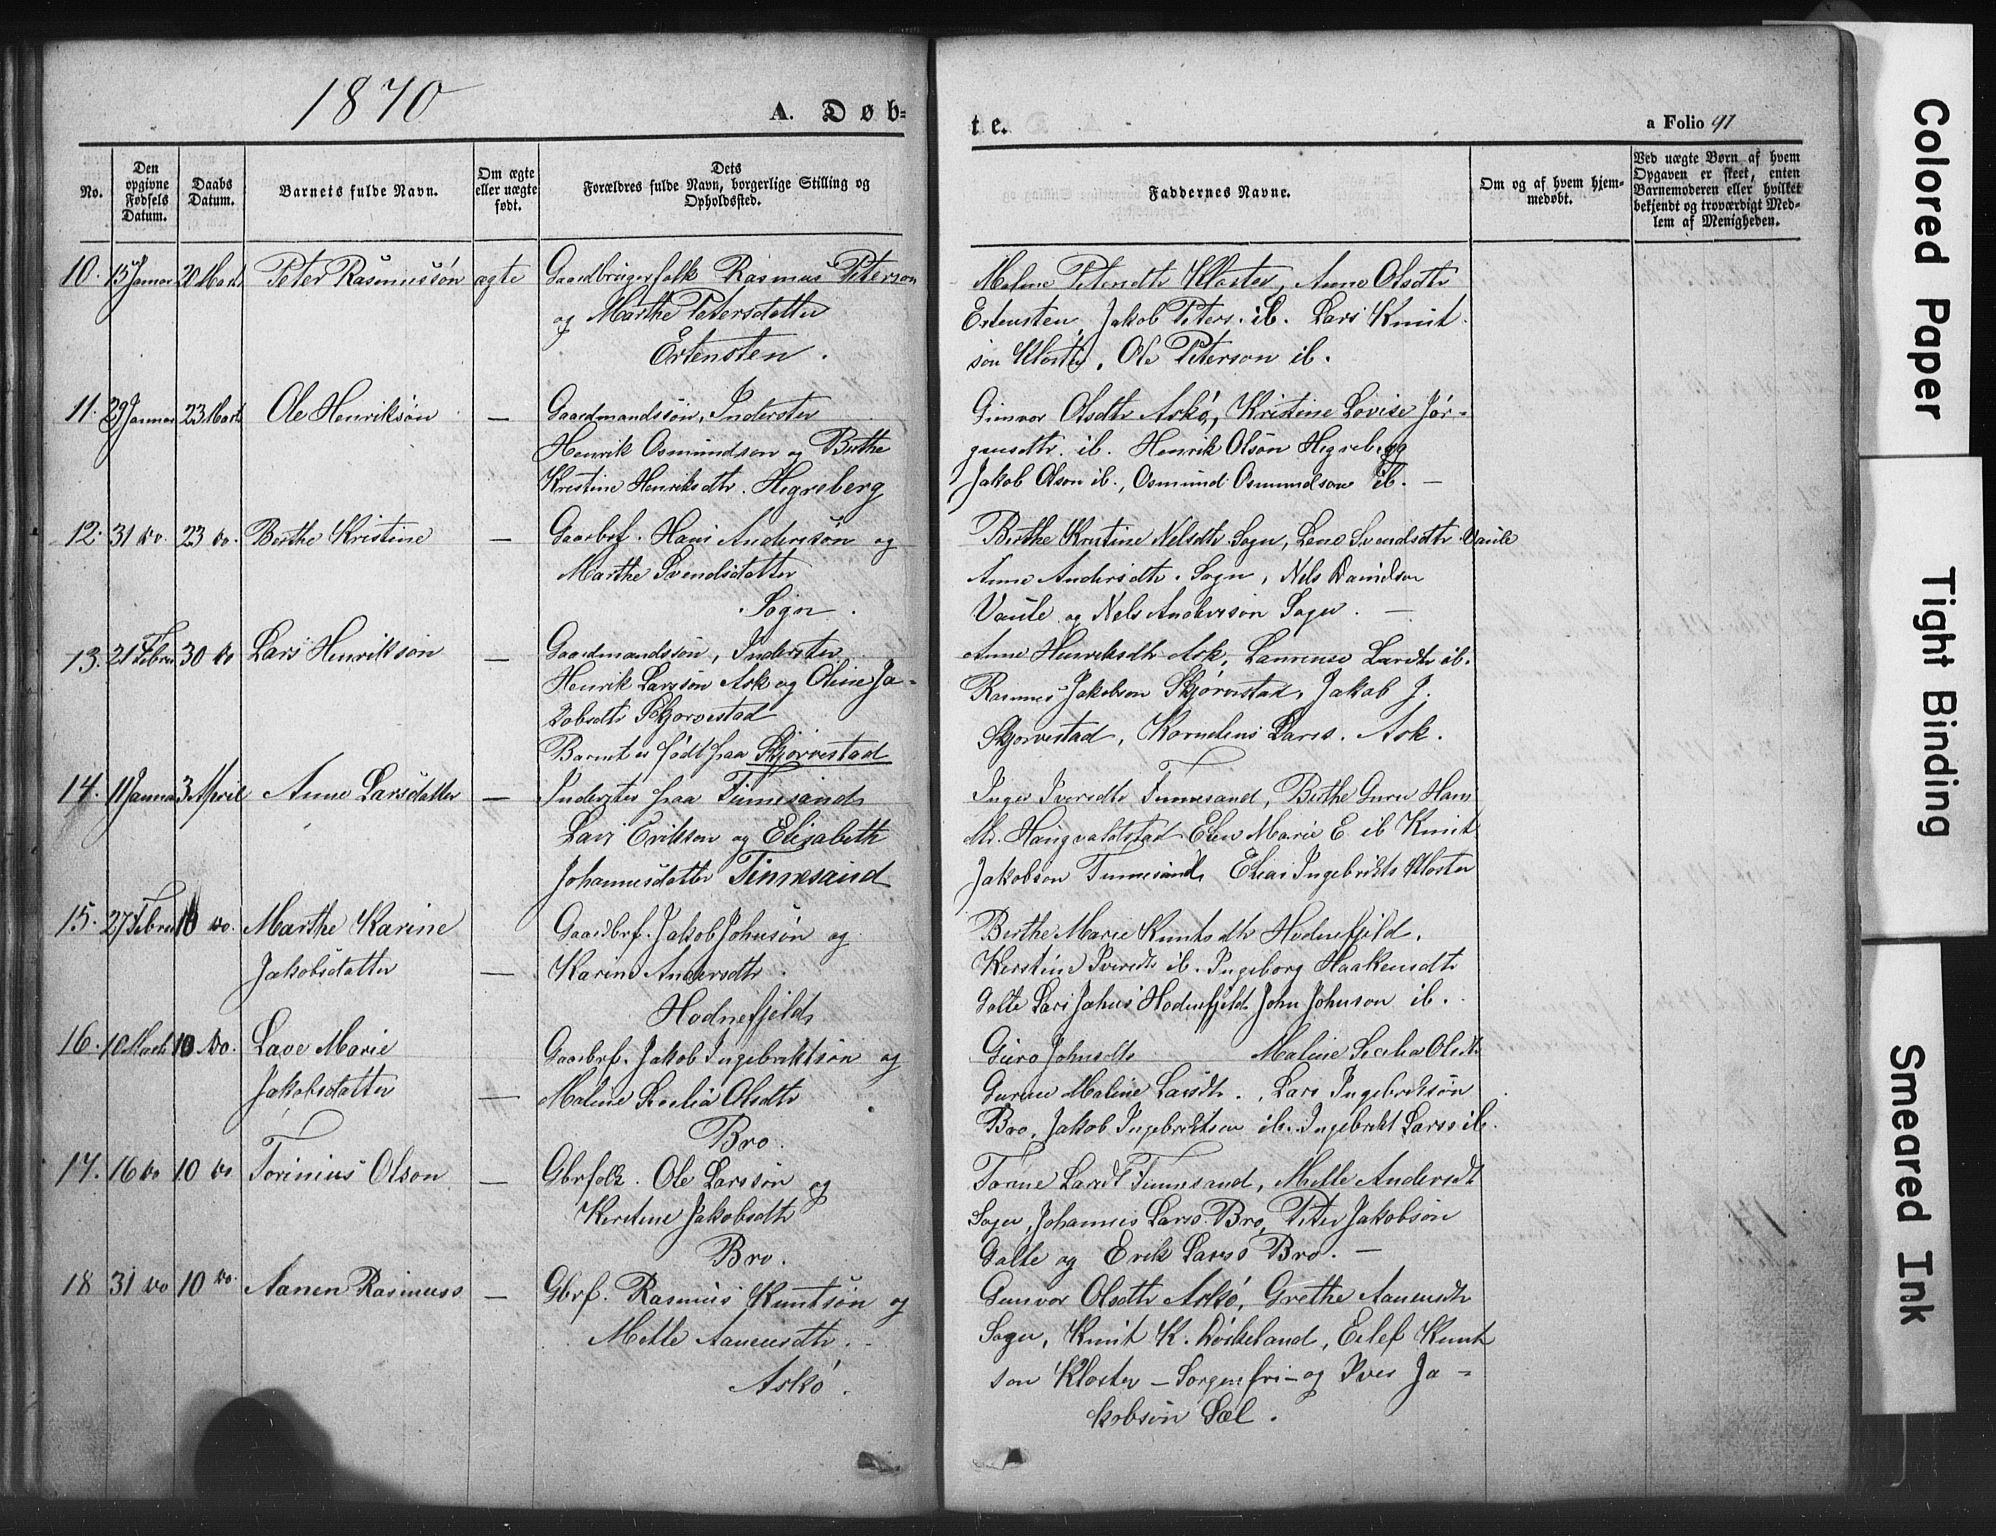 1870
A. Døb-
te.
a Folio 97
No.
Den opgivne Fødsels Datum.
Daabs Datum.
Barnets fulde Navn.
Om ægte eller uægte født.
Dets Forældres fulde Navn, borgerlige Stilling og Opholdssted.
Faddernes Navne.
Om og af hvem hjemmedøbt.
Ved uægte Børn af hvem Opgaven er skeet, enten Barnemoderen eller hvilket bekjendt og troværdigt Medlem af Menigheden.
10. 15 Januar 20 Marts Peter Rasmussøn ægte
Gaardbrugerfolk Rasmus Peterson
og Marthe Petersdatter
Ertensten.
Maline Petersdtr Kloster, Anne Olsdtr
Ertensten, Jakob Peters. ib. Lars Knut
søn Kloster, Ole Peterson ib.
11. 29 Januar 23 Marts Ole Henriksøn —
Gaardmandssøn, Inderster
Henrik Osmundson og Berthe
Kristine Henriksdtr. Hegreberg
Gunvor Olsdtr Askø, Kristine Lovise Jør-
gensdtr. ib. Henrik Olsøn Hegreberg
Jakob Olson ib., Osmund Osmundson ib. —
12. 31 do. 23 do. Berthe Kristine —
Gaarbrf. Hans Andersøn og
Marthe Svendsdatter
Sogn.
Berthe Kristine Nelsdtr Sogn, Lene Svendsdtr Vaule
Anne Andersdtr. Sogn, Nels Danielson
Vaule og Nels Anderson Sogn. —
13. 21 Febru 30 do Lars Henriksøn —
Gaardmandssøn, Inderster
Henrik Larsson Ask og Oline Ja-
kobsdtr Skjørvestad
Barnet er født paa Skjørvestad
Anne Henriksdtr Ask, Laurense Larsdtr ib.
Rasmus Jakobson Skjørvestad, Jakob J.
Skjørvestad, Kornelius Lars. Ask.
14. 11 Janua 3 April Anne Larsdatter —
Inderster paa Finnesand
Lars Erikson og Elisabeth
Johannesdatter Finnesand
Inger Iversdtr Finnesand, Berthe Guru Hans
Dtr. Hangvaldstad Elen Marie E. ib Knut
Jakobson Finnesand, Elias Ingebrikts Kloster
15. 27 Febru 10 do. Marthe Karine
Jakobsdatter —
Gaardbrf. Jakob Johnsøn og
Karine Andersdtr.
Hodnefjeld
Berthe Marie Knutsdtr Hodnefjeld.
Kerstine Iversdtr ib. Ingeborg Haakensdtr
Galte Lars Johns Hodnefjeld John Johnson ib.
16. 10 Marts 10 do. Lave Marie
Jakobsdatter —
Gaarbrf. Jakob Ingebriktsøn og
Maline Secilia Olsdtr
Bro.
Guro Johnsdtr Maline Secilia Olsdtr
Gurine Maline Larsdtr., Lars Ingebriktsøn
Bro, Jakob Ingebriktsen ib. Ingebrikt Larss ib.
17. 16 do 10 do Torinius Olson —
Gbrfolk. Ole Larssøn og
Kerstine Jakobsdtr
Bro.
Torine Larsdt Finnesand, Melle Andersdt
Sogn, Johannes Larss. Bro, Peter Jakobsøn
Galte og Erik Larss Bro. —
18 31 do 10 do. Aanen Rasmuss —
Gbrf. Rasmus Knutsøn og
Melle Aanensdtr.
Askø.
Gunvor Olsdtr Askø, Grethe Aanensdtr
Sogn, Knut K. Voikeland, Eilef Knut
son Kloster – Sorgenfri – og Iver Ja-
kobsøn Sæl.
Colored Paper
Tight Binding
Smeared Ink